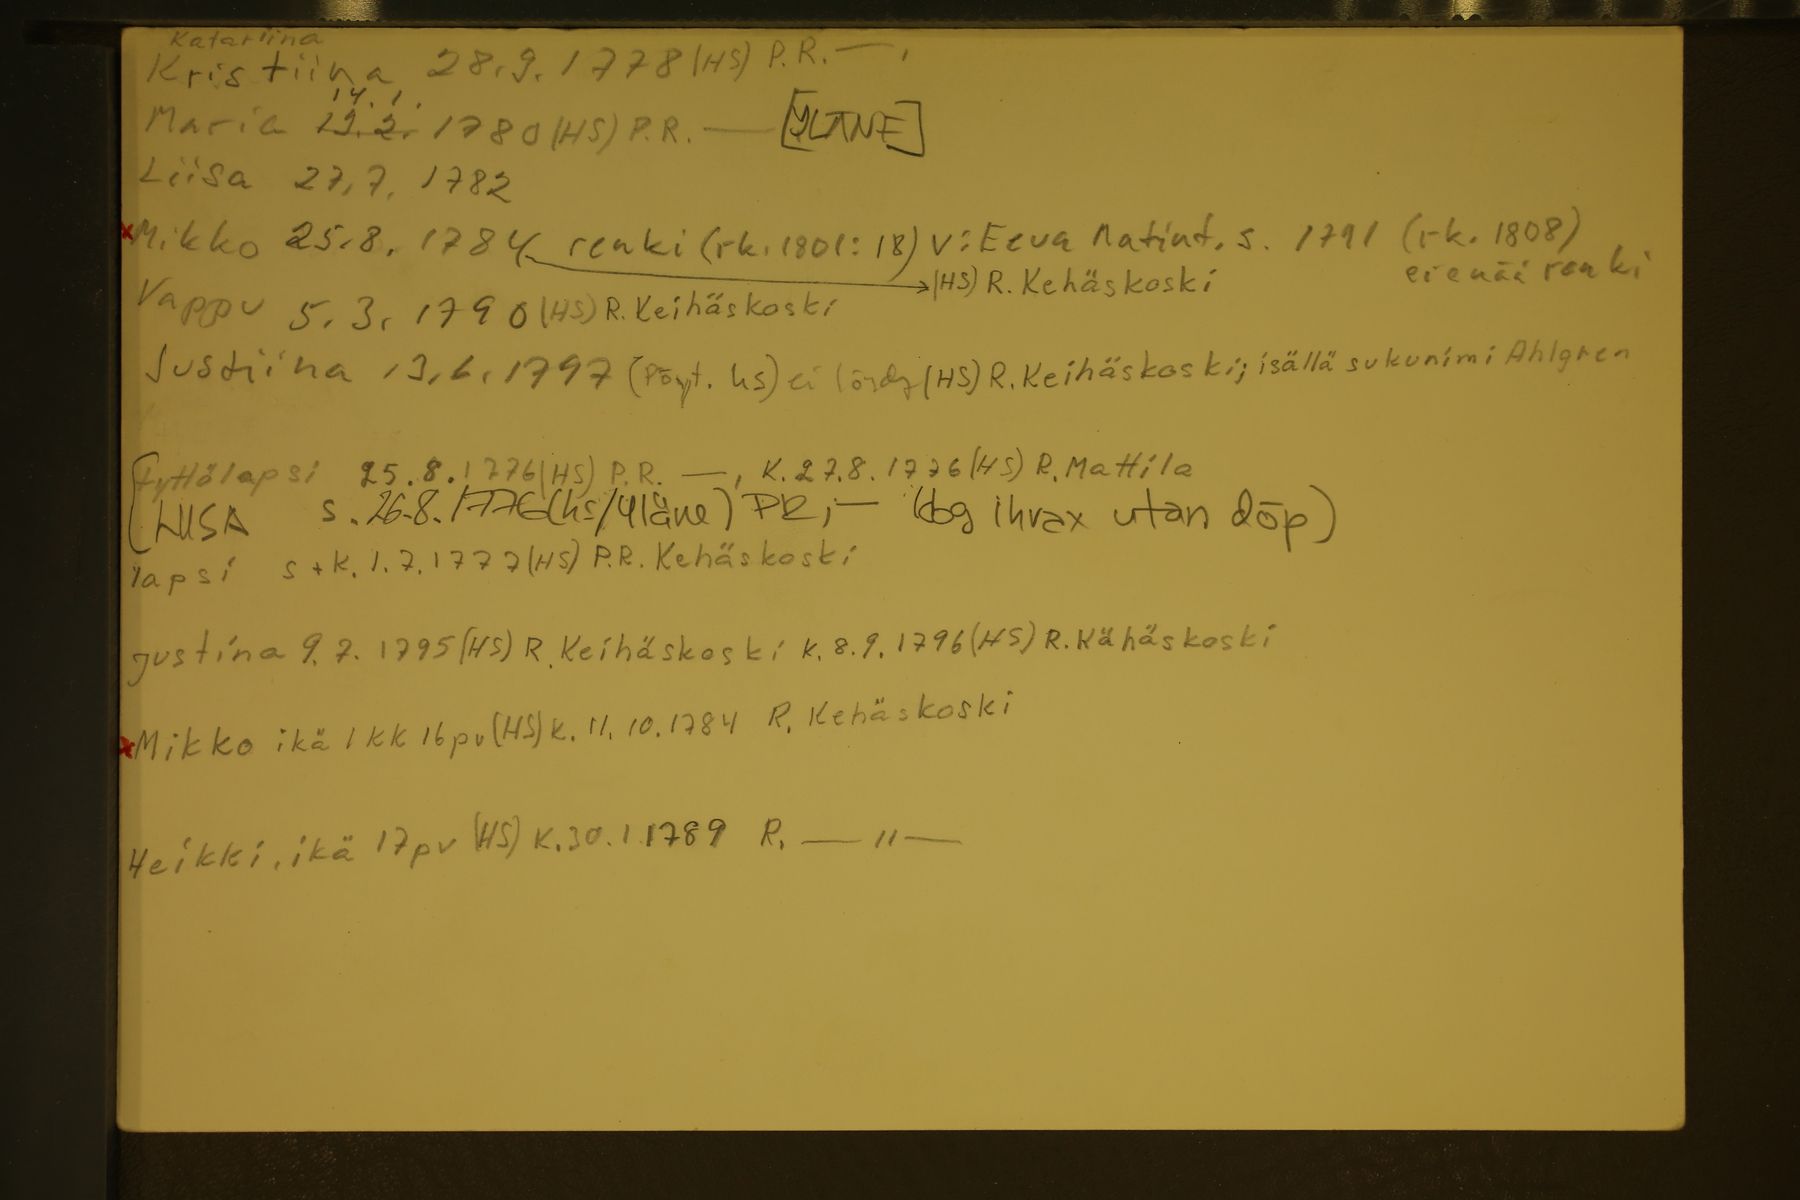 Katariina
Kristiina 28.9.1778 (HS) P.R. —,
14.1.
Maria 19.2. 1780 (HS) P.R. — [YLÄNE]
Liisa 27.7. 1782
x Mikko 25.8. 1784 renki (rk. 1801: 18) v: Eeva Matint. s. 1791 (rk. 1808)
ei enää renki
(HS) R. Kehäskoski
Vappu 5.3. 1790 (HS) R. Keihäskoski
Justiina 13.6.1797 (Pöyt. hs) ei löydy (HS) R. Keihäskoski; isällä sukunimi Ahlgren
tyttölapsi 25.8.1776 (HS) P.R. —, K. 27.8.1776 (HS) R. Mattila
LIISA s. 26.8.1776 (hs/Yläne) PR, — (dog utan döp)
lapsi s + k. 1.7.1777 (HS) P.R. Kehäskoski
justina 9.7. 1795 (HS) R. Keihäskoski k. 8.9.1796 (HS) R. Kähäskoski
x Mikko ikä 1 kk 16 pv (HS) k. 11.10.1784 R. Kehäskoski
Heikki, ikä 17 pv (HS) k. 30.1 1789 R. — " —